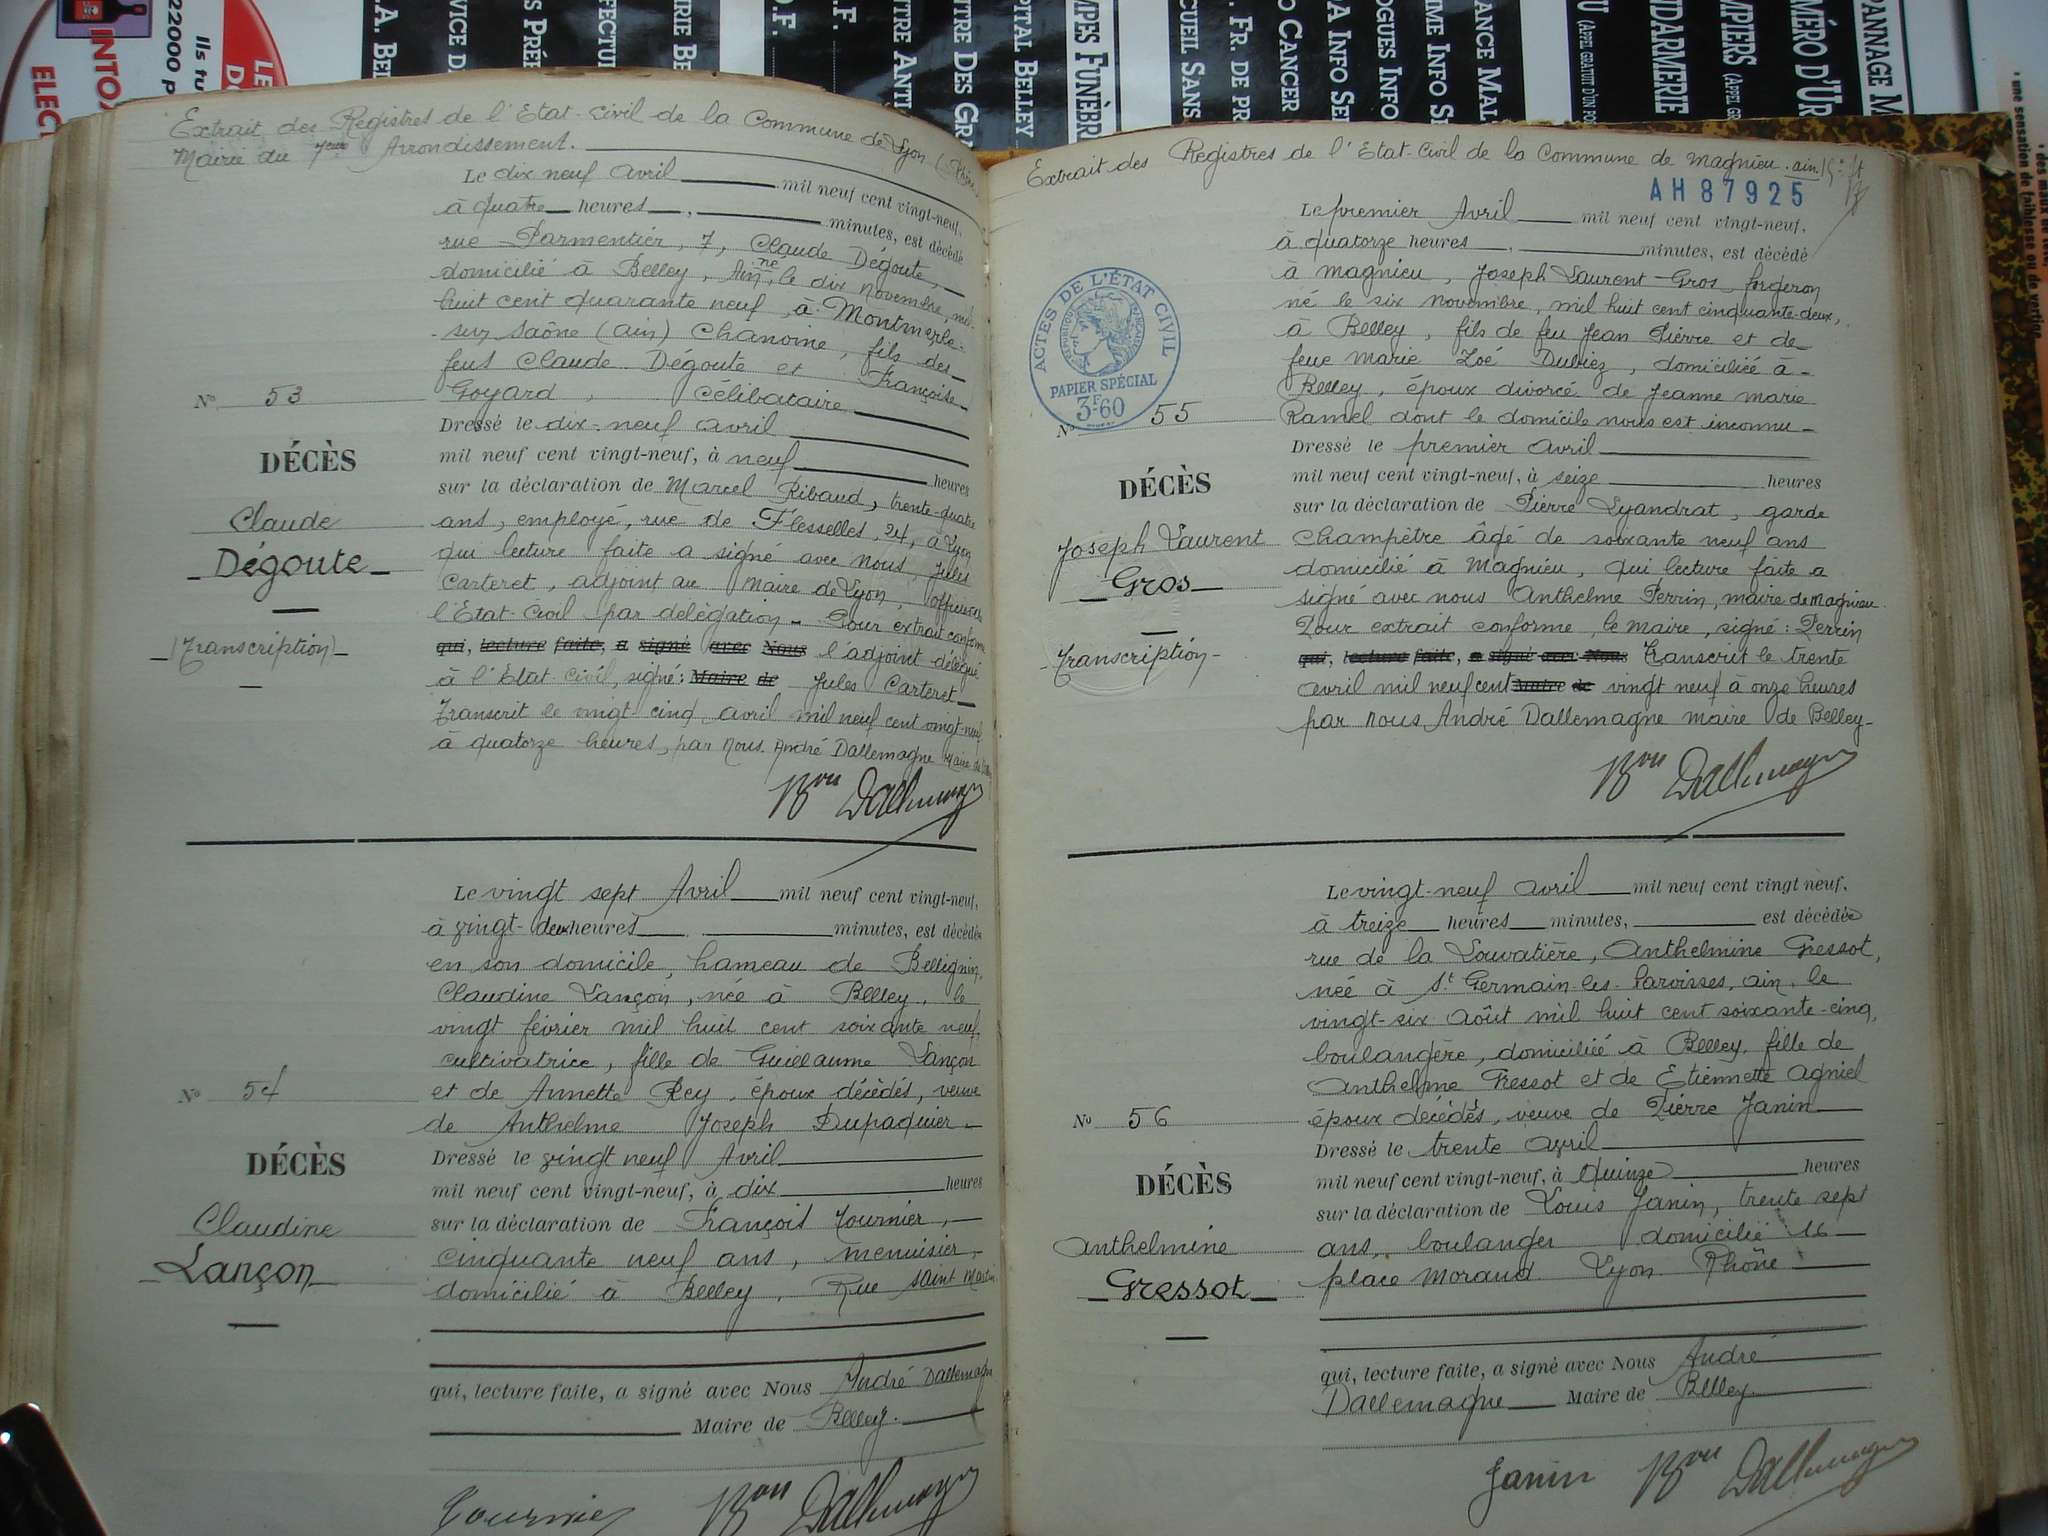 LE
Ils tu
22000 p
INTOX
ELECT
A. BEL
VICE D
S PRÉ
FECTU
IRIE BE
D.F.
.F.
TRE ANTI
TRE DES GR
PITAL BELLEY
MPES FUNÈBR
CUEIL SANS
. FR. DE PR
O CANCER
A INFO SE
OGUES INFO
MME INFO S
ANCE MAL
U (APPEL GRATUIT D'UN PO
NDARMERIE
MPIERS (APPEL GR
MÉRO D'UR
PANNAGE M
une sensation de faiblesse ou de vertige
Extrait des Registres de l'Etat-Civil de la Commune de Lyon (Rhône
Mairie du 7eme Arrondissement.
Le dix neuf avril mil neuf cent vingt-neuf,
à quatre heures , minutes, est décédé
rue Parmentier, 7, Claude Dégoute,
domicilié à Belley, Ain, né le dix novembre, mil
huit cent quarante neuf, à Montmerle-
sur Saône (ain) Chanoine, fils des
feus Claude Dégoute et Françoise
Goyard, Célibataire
Nº 53
Dressé le dix-neuf avril
mil neuf cent vingt-neuf, à neuf heures
DÉCÈS
sur la déclaration de Marcel Ribaud, trente-quatre
Claude
ans, employé, rue de Flesselles, 24, à Lyon
Dégoute
qui lecture faite a signé avec nous, Jules
Carteret, adjoint au Maire de Lyon, officier de
l'Etat-Civil par délégation - Pour extrait conforme
(Transcription)
qui, lecture faite, a signé avec Nous l'adjoint délégué
à l'Etat-Civil, signé: Maire de Jules Carteret
Transcrit le vingt cinq avril mil neuf cent vingt-neuf
à quatorze heures, par nous André Dallemagne Maire de
Bon Dallemagne
Le vingt sept Avril mil neuf cent vingt-neuf,
à vingt-deux heures minutes, est décédée
en son domicile, hameau de Bellignin,
Claudine Lançon, née à Belley, le
vingt février mil huit cent soixante neuf,
cultivatrice, fille de Guillaume Lançon
Nº 54
et de Annette Rey, époux décédés, veuve
de Anthelme Joseph Dupaquier
DÉCÈS
Dressé le vingt neuf Avril
mil neuf cent vingt-neuf, à dix heures
Claudine
sur la déclaration de François Tournier,
Lançon
cinquante neuf ans, menuisier,
domicilié à Belley, Rue Saint Martin
qui, lecture faite, a signé avec Nous André Dallemagne
Maire de Belley.
Tournier Bon Dallemagne
Extrait des Registres de l'Etat-Civil de la Commune de Magnieu. ain.
AH 87925
Le premier Avril mil neuf cent vingt-neuf,
à quatorze heures , minutes, est décédé
à Magnieu, Joseph Laurent Gros, forgeron
né le six novembre, mil huit cent cinquante-deux,
à Belley, fils de feu Jean Pierre et de
feue Marie Zoé Dubiez, domicilié à
Belley, époux divorcé de Jeanne Marie
Ramel dont le domicile nous est inconnu
ACTES DE L'ÉTAT CIVIL
RÉPUBLIQUE FRANÇAISE
PAPIER SPÉCIAL
3F60
Nº 55
Dressé le premier avril
mil neuf cent vingt-neuf, à seize heures
DÉCÈS
sur la déclaration de Pierre Lyandrat, garde
Joseph Laurent
champètre âgé de soixante neuf ans
Gros
domicilié à Magnieu, qui lecture faite a
signé avec nous Anthelme Perrin, maire de Magnieu.
Pour extrait conforme, le maire, signé: Perrin
Transcription
qui, lecture faite, a signé avec Nous Transcrit le trente
avril mil neuf cent Maire de vingt neuf à onze heures
par nous André Dallemagne maire de Belley
Bon Dallemagne
Le vingt-neuf avril mil neuf cent vingt neuf,
à treize heures minutes, est décédée
rue de la Louvatière, Anthelmine Gressot,
née à St Germain-les-Paroisses, ain, le
vingt-six Août mil huit cent soixante-cinq,
boulangère, domiciliée à Belley, fille de
Anthelme Gressot et de Etiennette Agniel
Nº 56
époux décédés, veuve de Pierre Janin
Dressé le trente avril
DÉCÈS
mil neuf cent vingt-neuf, à quinze heures
sur la déclaration de Louis Janin, trente sept
Anthelmine
ans, boulanger domicilié 16
Gressot
place Moraud Lyon Rhône
qui, lecture faite, a signé avec Nous André
Dallemagne Maire de Belley
Janin Bon Dallemagne